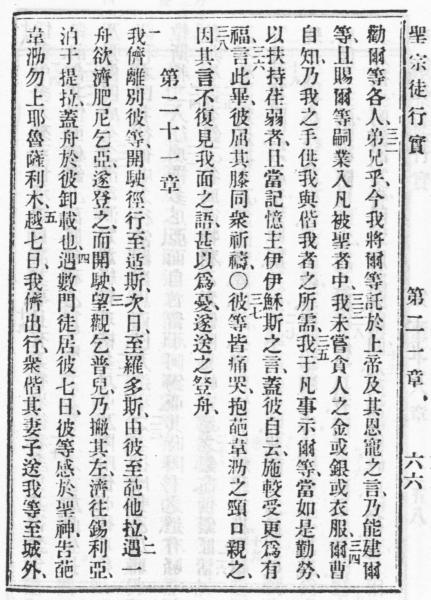 聖宗徒行實 第二一章 六六
勸爾等各人、三二弟兄乎、今我將爾等託於上帝及其恩寵之言、乃能建爾
等且賜爾等嗣業入凡被聖者中、三三我未嘗貪人之金或銀或衣服、三四爾曹
自知乃我之手供我與偕我者之所需、三五我于凡事示爾等、當如是勤勞、
以扶持荏弱者、且當記憶主伊伊穌斯之言、蓋彼自云、施較受更爲有
福、三六言此畢、彼屈其膝同衆祈禱、〇三七彼等皆痛哭、抱葩韋泐之頸口親之、
三八因其言不復見我面之語、甚以爲憂、遂送之登舟、
第二十一章
一我儕離別彼等、開駛徑行至适斯、次日至羅多斯、由彼至葩他拉、二遇一
舟欲濟肥尼乞亞、遂登之而開駛、三望觀乞普兒、乃撇其左、濟往錫利亞、
泊于提拉、蓋舟於彼卸載也、四遇數門徒居彼七日、彼等感於聖神告葩
韋泐勿上耶魯薩利木、五越七日、我儕出行、衆偕其妻子送我等至城外、